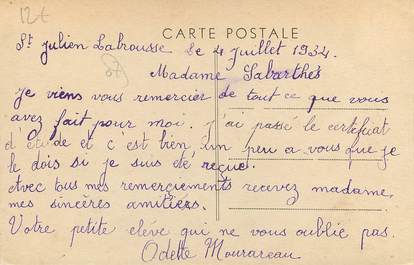 12t
CARTE POSTALE
St Julien Labrousse le 4 Juillet 1934.
Madame Sabarthès
Je viens vous remercier de tout ce que vous
avez fait pour moi. j'ai passé le certificat
d'étude et c'est bien un peu a vous que je
le dois si je suis été reçue.
Avec tous mes remerciements recevez madame,
mes sincères amitiers.
Votre petite eléve qui ne vous oublie pas.
Odette Mourareau